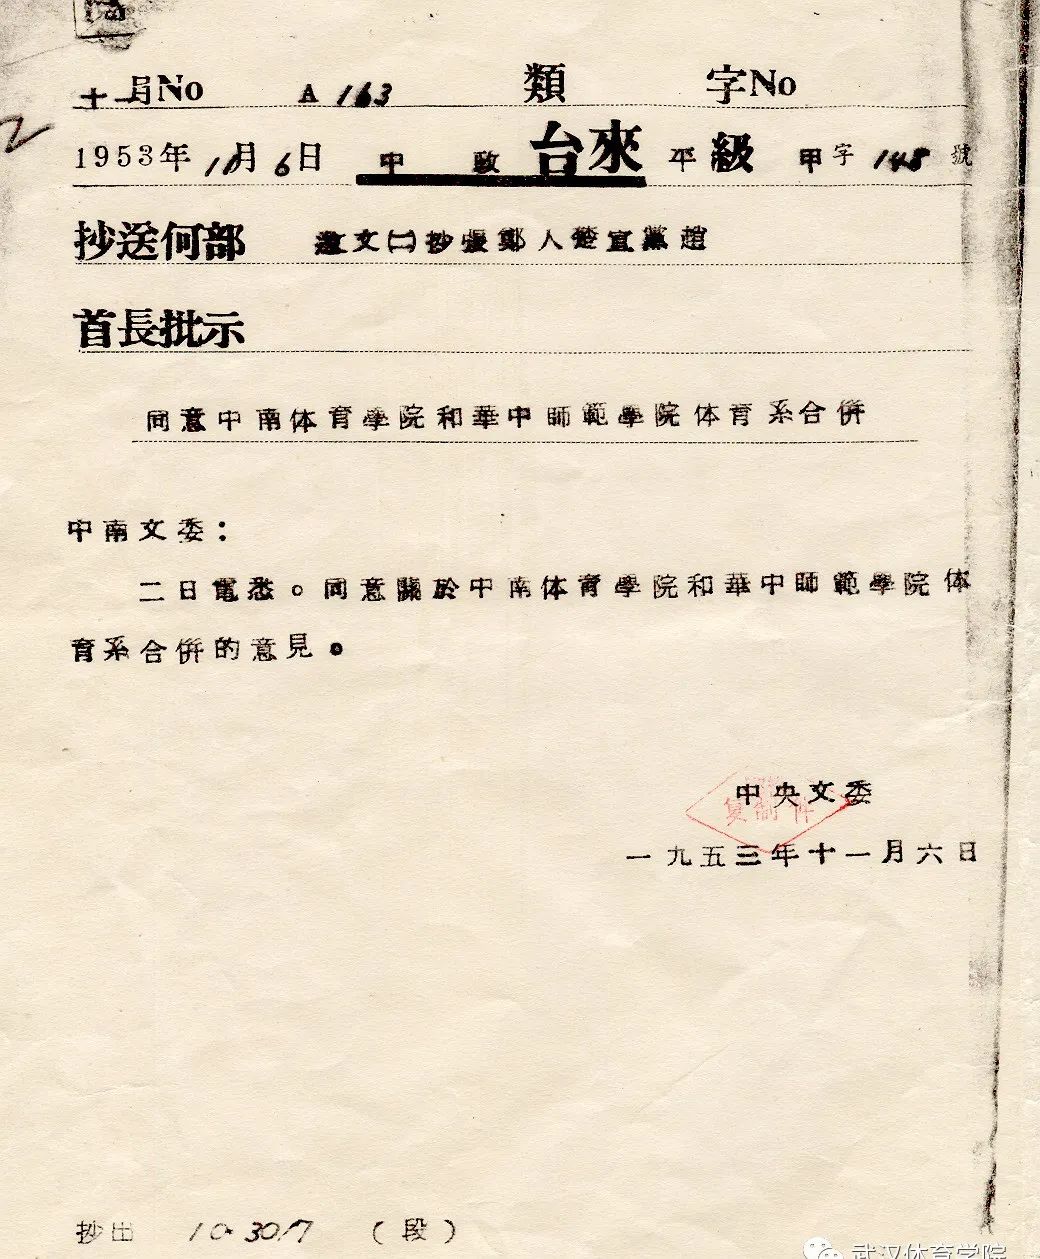 十一月No A 163 類 字No
1953年11月6日 中 政 台來 平 級 甲 字 148 號
抄送何部 文㈡抄張鄭人楚宣黨趙
首長批示
同意中南体育學院和華中師範學院体育系合併
中南文委：
二日電悉。同意關於中南体育學院和華中師範學院体
育系合併的意見。
中央文委
复制件
一九五三年十一月六日
抄出 10.30. （段）
武汉体育学院